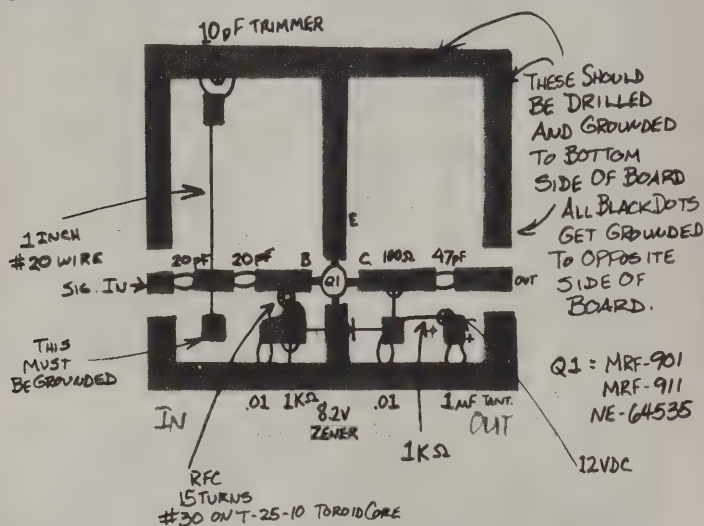 10pF TRIMMER
THESE SHOULD
BE DRILLED
AND GROUNDED
TO BOTTOM
SIDE OF BOARD
ALL BLACK DOTS
GET GROUNDED
TO OPPOSITE
SIDE OF
BOARD.
1 INCH
#20 WIRE
E
20pF 20pF B Q1 C 100Ω 47pF
SIG. IN OUT
THIS
MUST
BE GROUNDED
+ +
Q1 = MRF-901
MRF-911
NE-64535
IN .01 1KΩ 8.2V .01 1 µF TANT. OUT
ZENER
1KΩ
12VDC
RFC
15 TURNS
#30 ON T-25-10 TOROID CORE